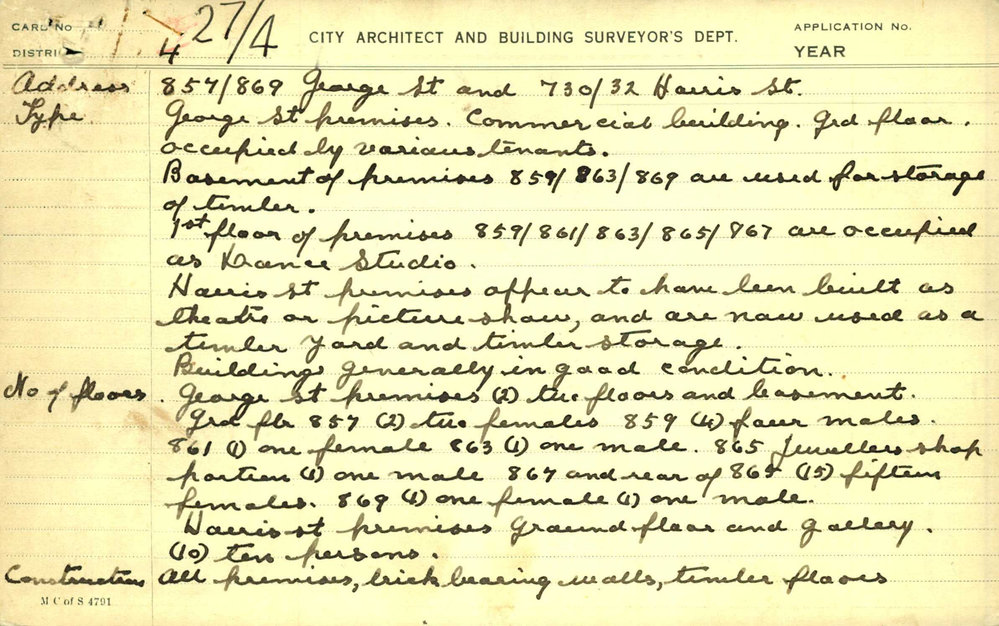 CARD No 27/4 CITY ARCHITECT AND BUILDING SURVEYOR'S DEPT. APPLICATION No.
DISTRICT 4 YEAR
Address 857/869 George St and 730/32 Harris St.
Type George St premises. Commercial building. Grd floor.
occupied by various tenants.
Basement of premises 859/863/869 are used for storage
of timber.
1st floor of premises 859/861/863/865/867 are occupied
as Dance Studio.
Harris St premises appear to have been built as
theatre or picture show, and are now used as a
timber yard and timber storage.
Buildings generally in good condition.
No of floors. George St premises (2) two floors and basement.
Grd flr 857 (2) two females 859 (4) four males.
861 (1) one female 863 (1) one male. 865 Jewellers shop
portion (1) one male 867 and rear of 865 (15) fifteen
females. 869 (1) one female (1) one male.
Harris st premises Ground floor and gallery.
(10) ten persons.
Construction All premises, brick bearing walls, timber floors
M C of S 4791